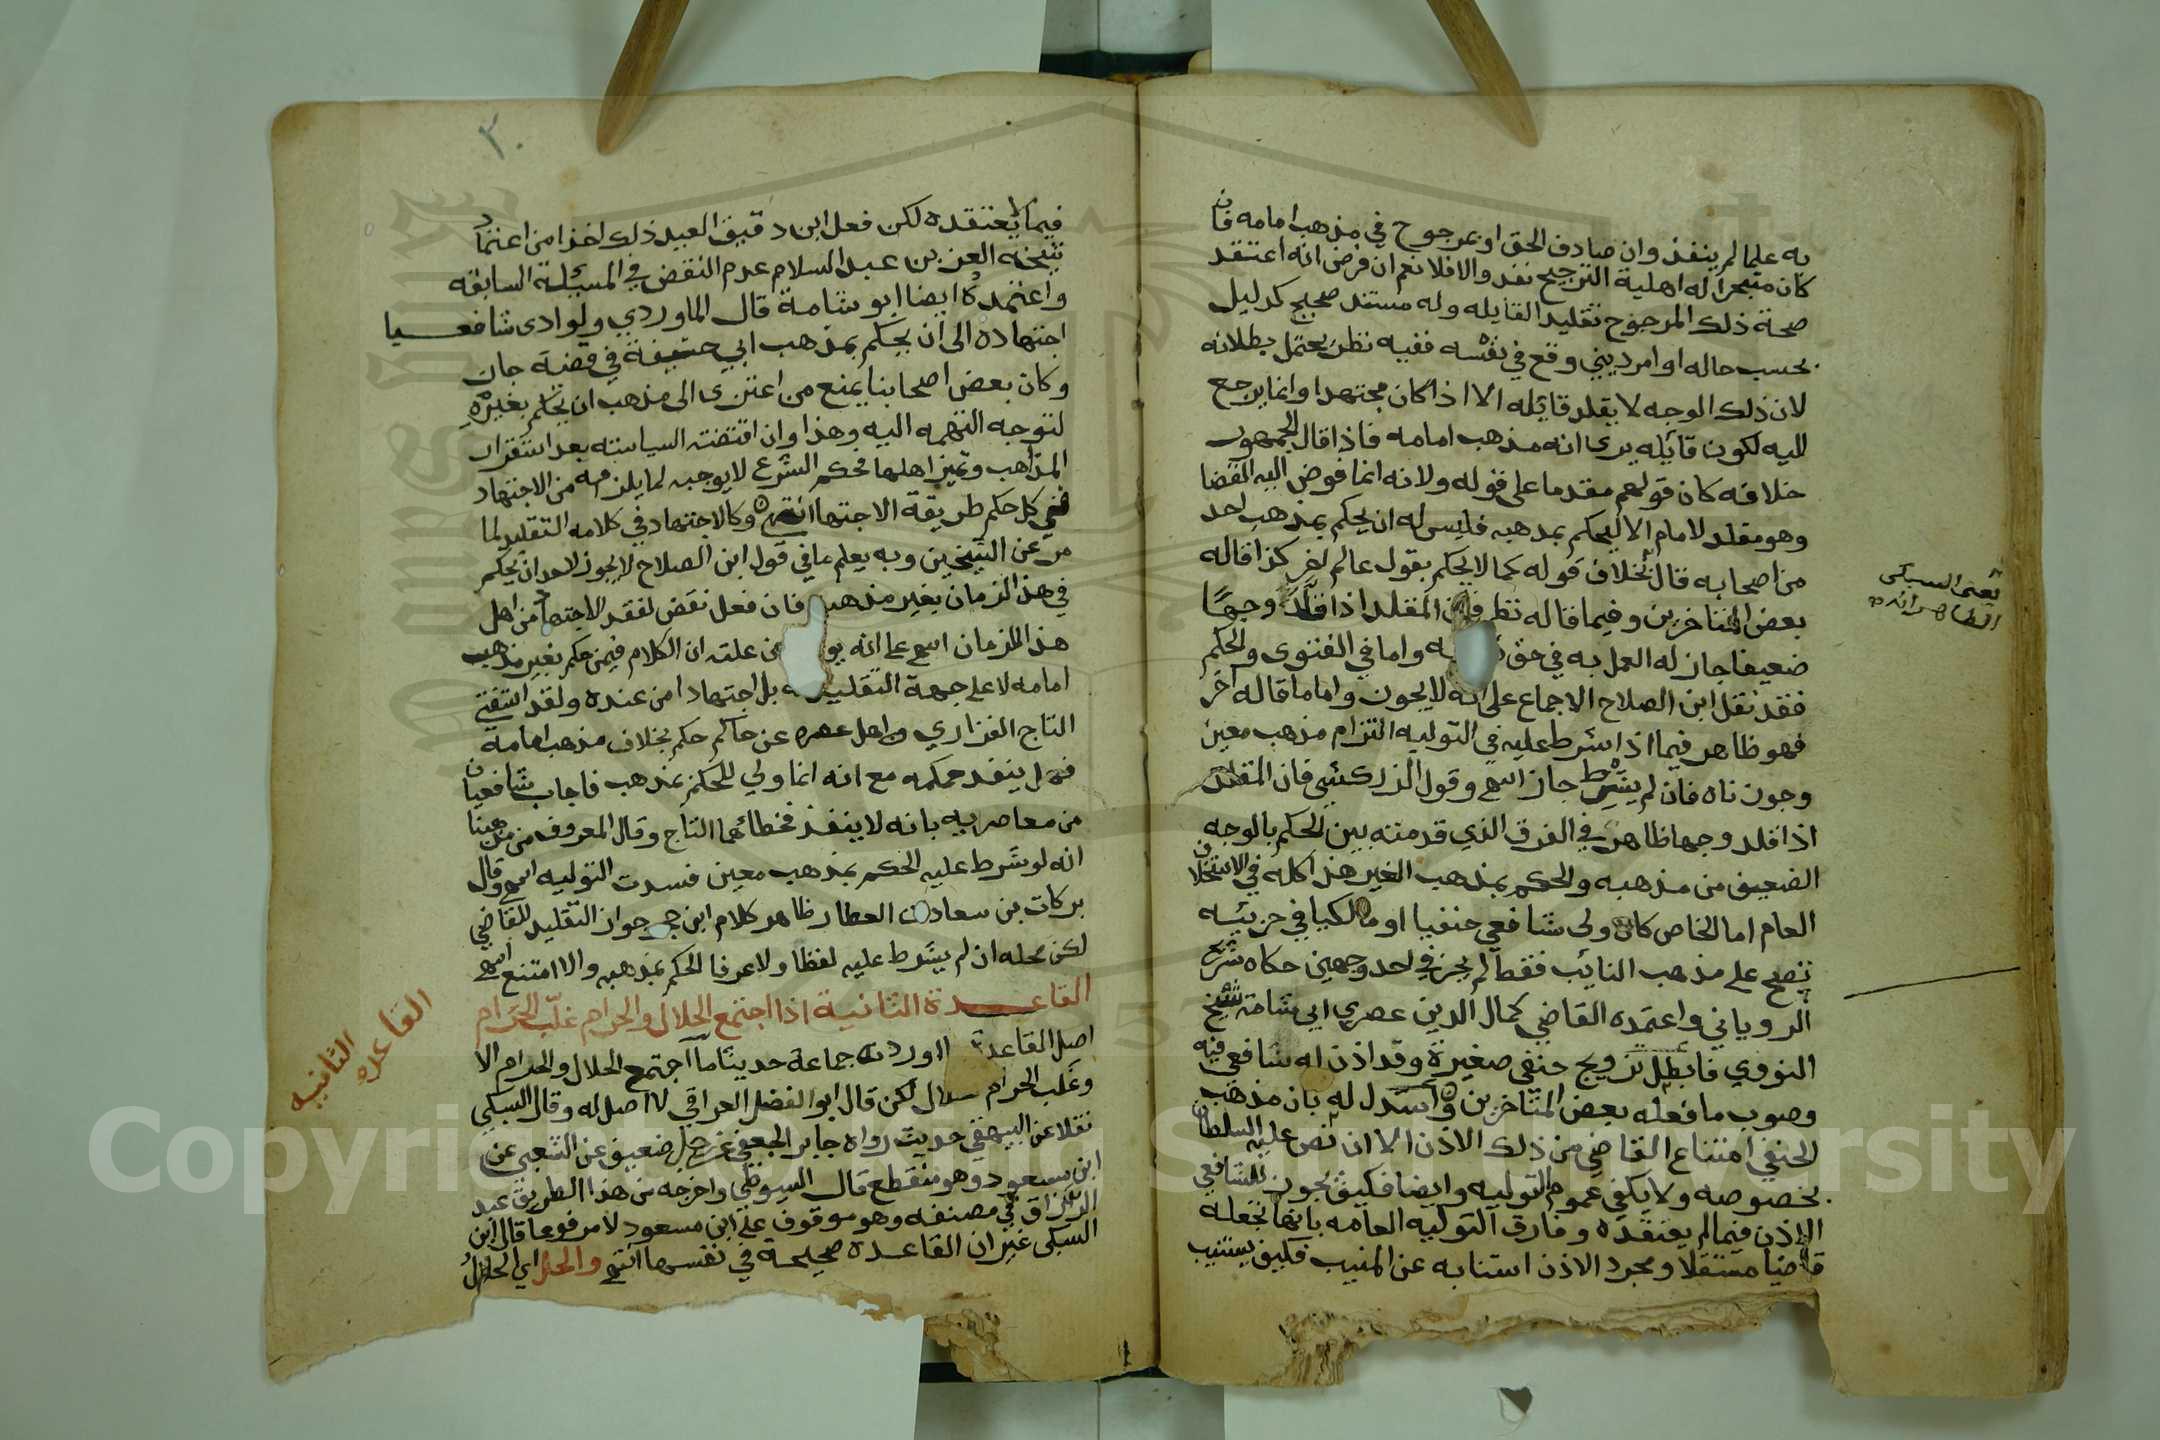 به علما لم ينفذ وان صادف الحق او بمرجوح في مذهب امامه فان
كان متبحرا له اهلية الترجيح نفد والا فلا نعم ان فرض انه اعتقد
صحة ذلك المرجوح تقليد القايله وله مستند صحيح كدليل
بحسب حاله او امر ديني وقع في نفسه ففيه نظر يحتمل بطلانه
لان ذلك الوجه لا يقلد قائله الا اذا كان مجتهدا وانما يرجع
اليه لكون قائله يرى انه مذهب امامه فاذا قال الجمهور
خلافه كان قولهم مقدما على قوله ولانه انما فوض اليه القضا
وهو مقلد لامام الا ليحكم بمذهبه فليس له ان يحكم بمذهب احد
من اصحابه قال بخلاف قوله كما لا يحكم بقول عالم اخر كذا قاله
بعض المتاخرين وفيما قاله نظر فان المقلد اذا قلد وجها
ضعيفا جاز له العمل به في حق نفسه واما في الفتوى والحكم
فقد نقل ابن الصلاح الاجماع على انه لا يجوز واما ما قاله آخر
فهو ظاهر فيما اذا شرط عليه في التوليه التزام مذهب معين
وجوزناه فان لم يشرط جاز انتهى وقول الزركشي فان المقلد
اذا قلد وجها ظاهر في الفرق الذي قدمته بين الحكم بالوجه
الضعيف من مذهبه والحكم بمذهب الغير هذا كله في الاستخلاف
العام اما الخاص كان ولى شافعي حنفيا او مالكيا في جزئيه
تصح على مذهب النائب فقط لم يجز في احد وجهين حكاه شريح
الروياني واعتمده القاضي كمال الدين عصري ابي شامة شيخ
النووي فابطل تزويج حنفي صغيرة وقد اذن له شافعي فيه
وصوب ما فعله بعض المتاخرين واستدل له بان مذهب
الحنفي امتناع القاضي من ذلك الاذن الا ان نص عليه السلطان
بخصوصه ولا يكفي عموم التوليه وايضا فكيف يجوز للشافعي
الاذن فيما لم يعتقده وفارق التوليه العامه بانها تجعله
قاضيا مستقلا ومجرد الاذن استنابه عن المنيب فكيف يستنيب
يعني السبكي
الظاهر انه
٣٠
فيما لا يعتقده لكن فعل ابن دقيق العيد ذلك اخذا من اعتماد
شيخه العز بن عبد السلام عدم النقض في المسئلة السابقه
واعتمده ايضا ابو شامة قال الماوردي ولو ادى شافعيا
اجتهاده الى ان يحكم بمذهب ابي حنيفة في قضيه جاز
وكان بعض اصحابنا يمنع من اعتزى الى مذهب ان يحكم بغيره
لتوجه التهمه اليه وهذا وان اقتضته السياسته بعد استقرار
المذاهب وتميز اهلها فحكم الشرع لا يوجبه لما يلزمه من الاجتهاد
في كل حكم طريقة الاجتها انتهى وكالاجتهاد في كلامه التقليد لما
مر عن الشيخين وبه يعلم ما في قول ابن الصلاح لا يجوز لاحد ان يحكم
في هذ الزمان بغير مذهبه فان فعل نقض لفقد الاجتهاد من اهل
هذ الزمان انتهى على انه من علته ان الكلام فيمن حكم بغير مذهب
امامه لا على جهة التقليد بل اجتهادا من عنده ولقد استفتي
التاج الفزاري واهل عصره عن حاكم حكم بخلاف مذهب امامه
فهل ينفد حكمه مع انه انما ولي للحكم بمذهب فاجاب شافعيان
من معاصريه بانه لا ينفذ فخطائهما التاج وقال المعروف من مذهبنا
انه لو شرط عليه الحكم بمذهب معين فسدت التوليه انتهى وقال
بركات بن سعادت العطار ظاهر كلام ابن حجر جواز التقليد للقاضي
لكن محله ان لم يشرط عليه لفظا ولا عرفا الحكم بمذهبه والا امتنع انتهى
القاعدة الثانية اذا اجتمع الحلال والحرام غلب الحرام
اصل القاعدة اوردت جماعة حديثا ما اجتمع الحلال والحرام الا
وغلب الحرام الحلال لكن قال ابو الفضل العراقي لا اصل له وقال السبكي
نقلا عن البيهقي حديث رواه جابر الجعفي رجل ضعيف عن الشعبي عن
ابن مسعود وهو منقطع قال السيوطي واخرجه من هذا الطريق عبد
الرزاق في مصنفه وهو موقوف على ابن مسعود لا مرفوعا قال ابن
السبكي غير ان القاعده صحيحة في نفسها انتهى والحل اي الحلال
القاعده
الثانيه
Copyright © King Saud University